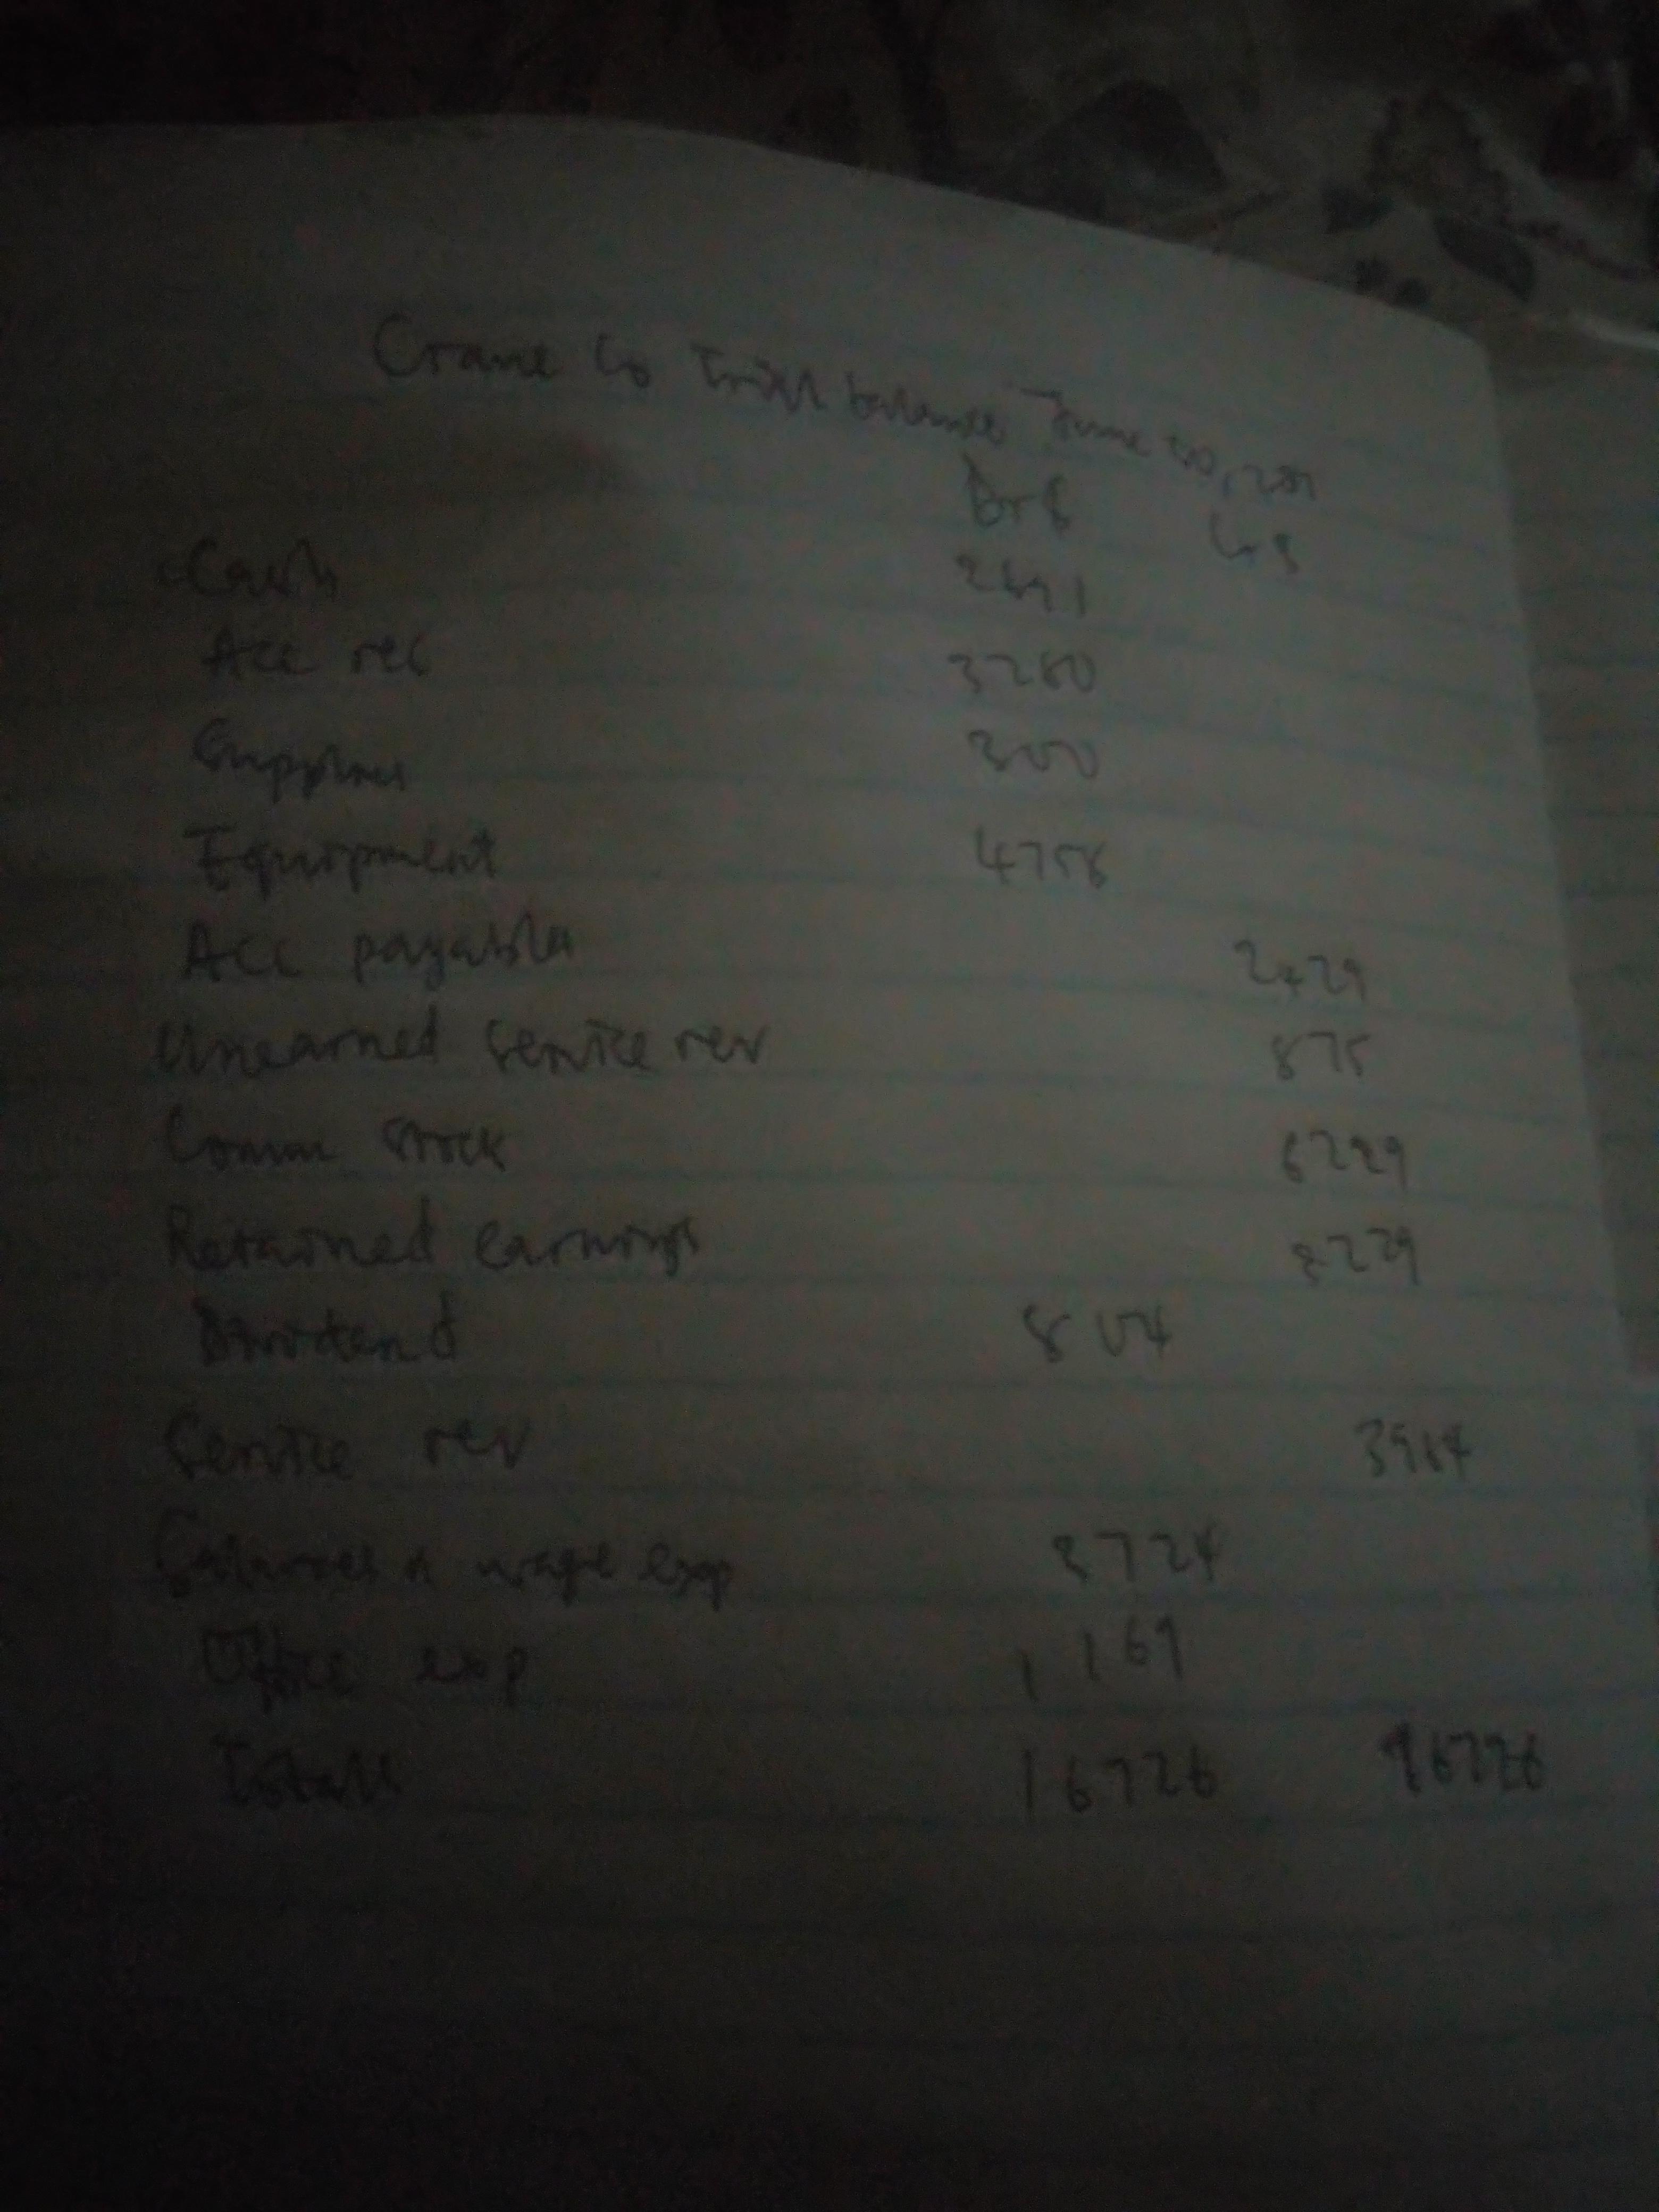 Crane Co Trial balance June 30,
Dr $ Cr $
Cash 2691
Acc rec 3280
Supplies 300
Equipment 4756
Acc payable 2429
Unearned service rev 875
Comm stock 6229
Retained earnings 3229
Dividend 804
Service rev 3964
Salaries n wage exp 3724
Office exp 1169
Totals 16726 16726